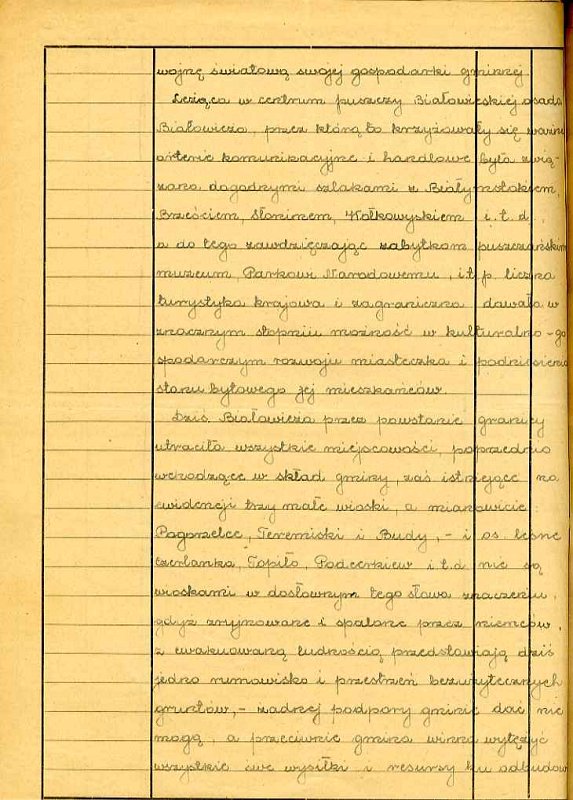 wojnę światową swojej gospodarki gminnej.
Leżąca w centrum puszczy Białowieskiej osada
Białowieża, przez którą to krzyżowały się ważne
arterie komunikacyjne i handlowe była zwią-
zana dogodnymi szlakami z Białymstokiem,
Brześciem, Słonimem, Wołkowyskiem i.t.d.,
a do tego zawdzięczając zabytkom puszczańskim
muzeum, Parkowi Narodowemu, i t.p. liczna
turystyka krajowa i zagraniczna dawała w
znacznym stopniu możność w kulturalno-go
spodarczym rozwoju miasteczka i podniesienia
stanu bytowego jej mieszkańców.
Dziś Białowieża przez powstanie granicy
utraciła wszystkie miejscowości, poprzednio
wchodzące w skład gminy, zaś istniejące na
ewidencji trzy małe wioski, a mianowicie:
Pogorzelce, Teremiski i Budy, - i os. leśne
Czerlanka, Topiło, Podcerkiew i.t.d. nie są
wioskami w dosłownym tego słowa znaczeniu,
gdyż zrujnowane i spalone przez niemców,
z ewakuowaną ludnością przedstawiają dziś
jedno rumowisko i przestrzeń bezużytecznych
gruntów, - żadnej podpory gminie dać nie
mogą, a przeciwnie gmina winna wytężyć
wszystkie swe wysiłki i resursy ku odbudow